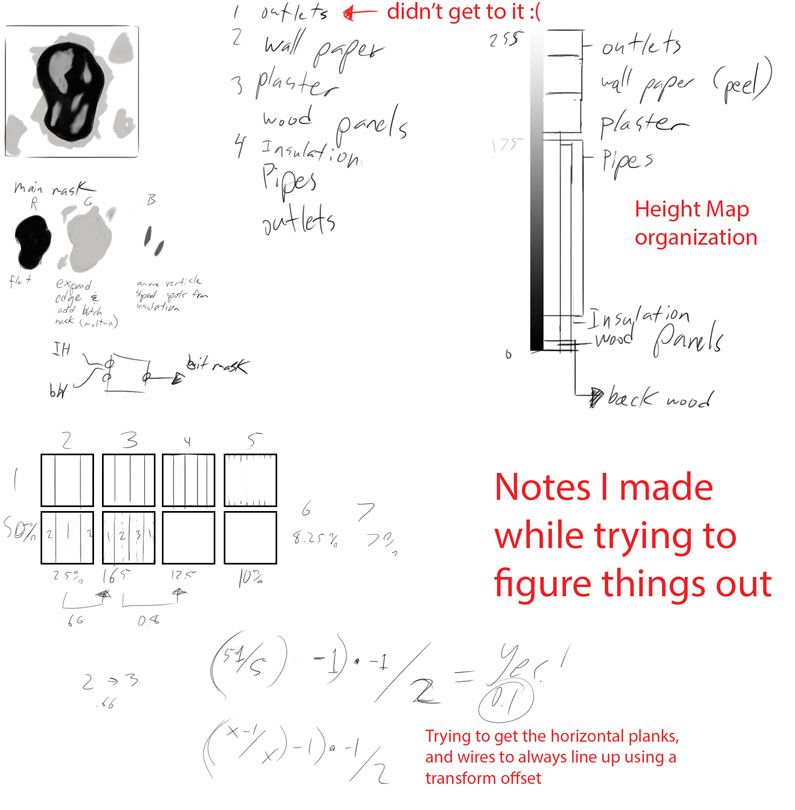 1 outlets
didn't get to it :(
2 wall paper
3 plaster
wood panels
4 Insulation
Pipes
outlets
255
outlets
wall paper (peel)
plaster
175
Pipes
Height Map
organization
Insulation
wood panels
0
back wood
main mask
R G B
flat
expand
edge &
add
mask
insulation
IH
bW
mask
2 3 4 5
1
50%
2 1 2
1 2 3 1
6 7
8.25% 7%
25% 16.5 12.5 10%
.66 0.8
Notes I made
while trying to
figure things out
2 → 3
.66
-1) • -1/2 = Yes!
0.1
(x-1/x) -1) • -1/2
Trying to get the horizontal planks,
and wires to always line up using a
transform offset